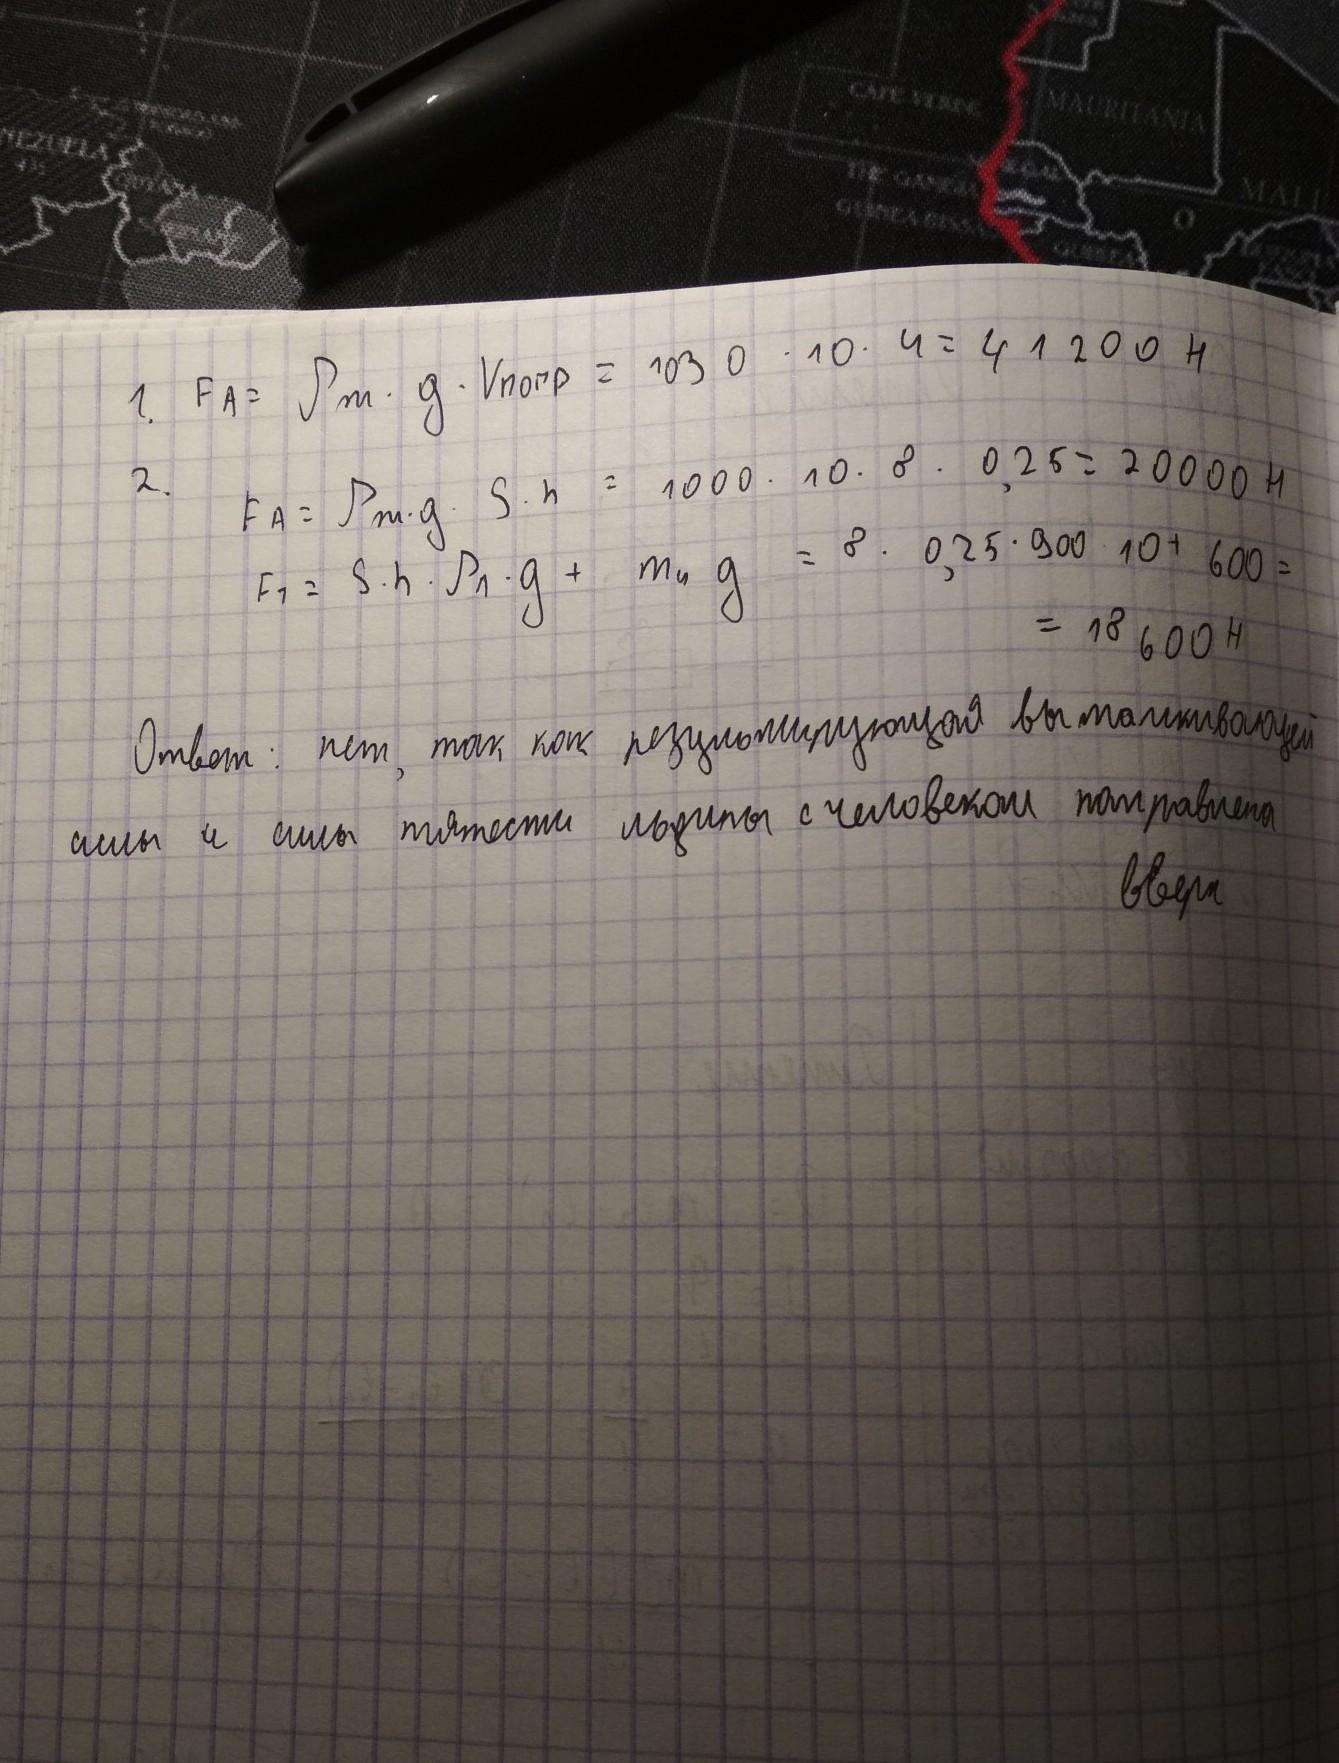 NEZUELA
GUYANA
CAPE VERDE
MAURITANIA
MALI
THE GAMBIA
GUINEA-BISSAU
GUINEA
1. FA = ρт · g · Vпогр = 1030 · 10 · 4 = 41200 Н
2.
FA = ρт · g · S · h = 1000 · 10 · 8 · 0,25 = 20000 Н
F1 = S · h · ρл · g + mч g = 8 · 0,25 · 900 · 10 + 600 =
= 18600 Н
Ответ: нет, так как результирующая выталкивающей
силы и силы тяжести льдины с человеком направлена
вверх